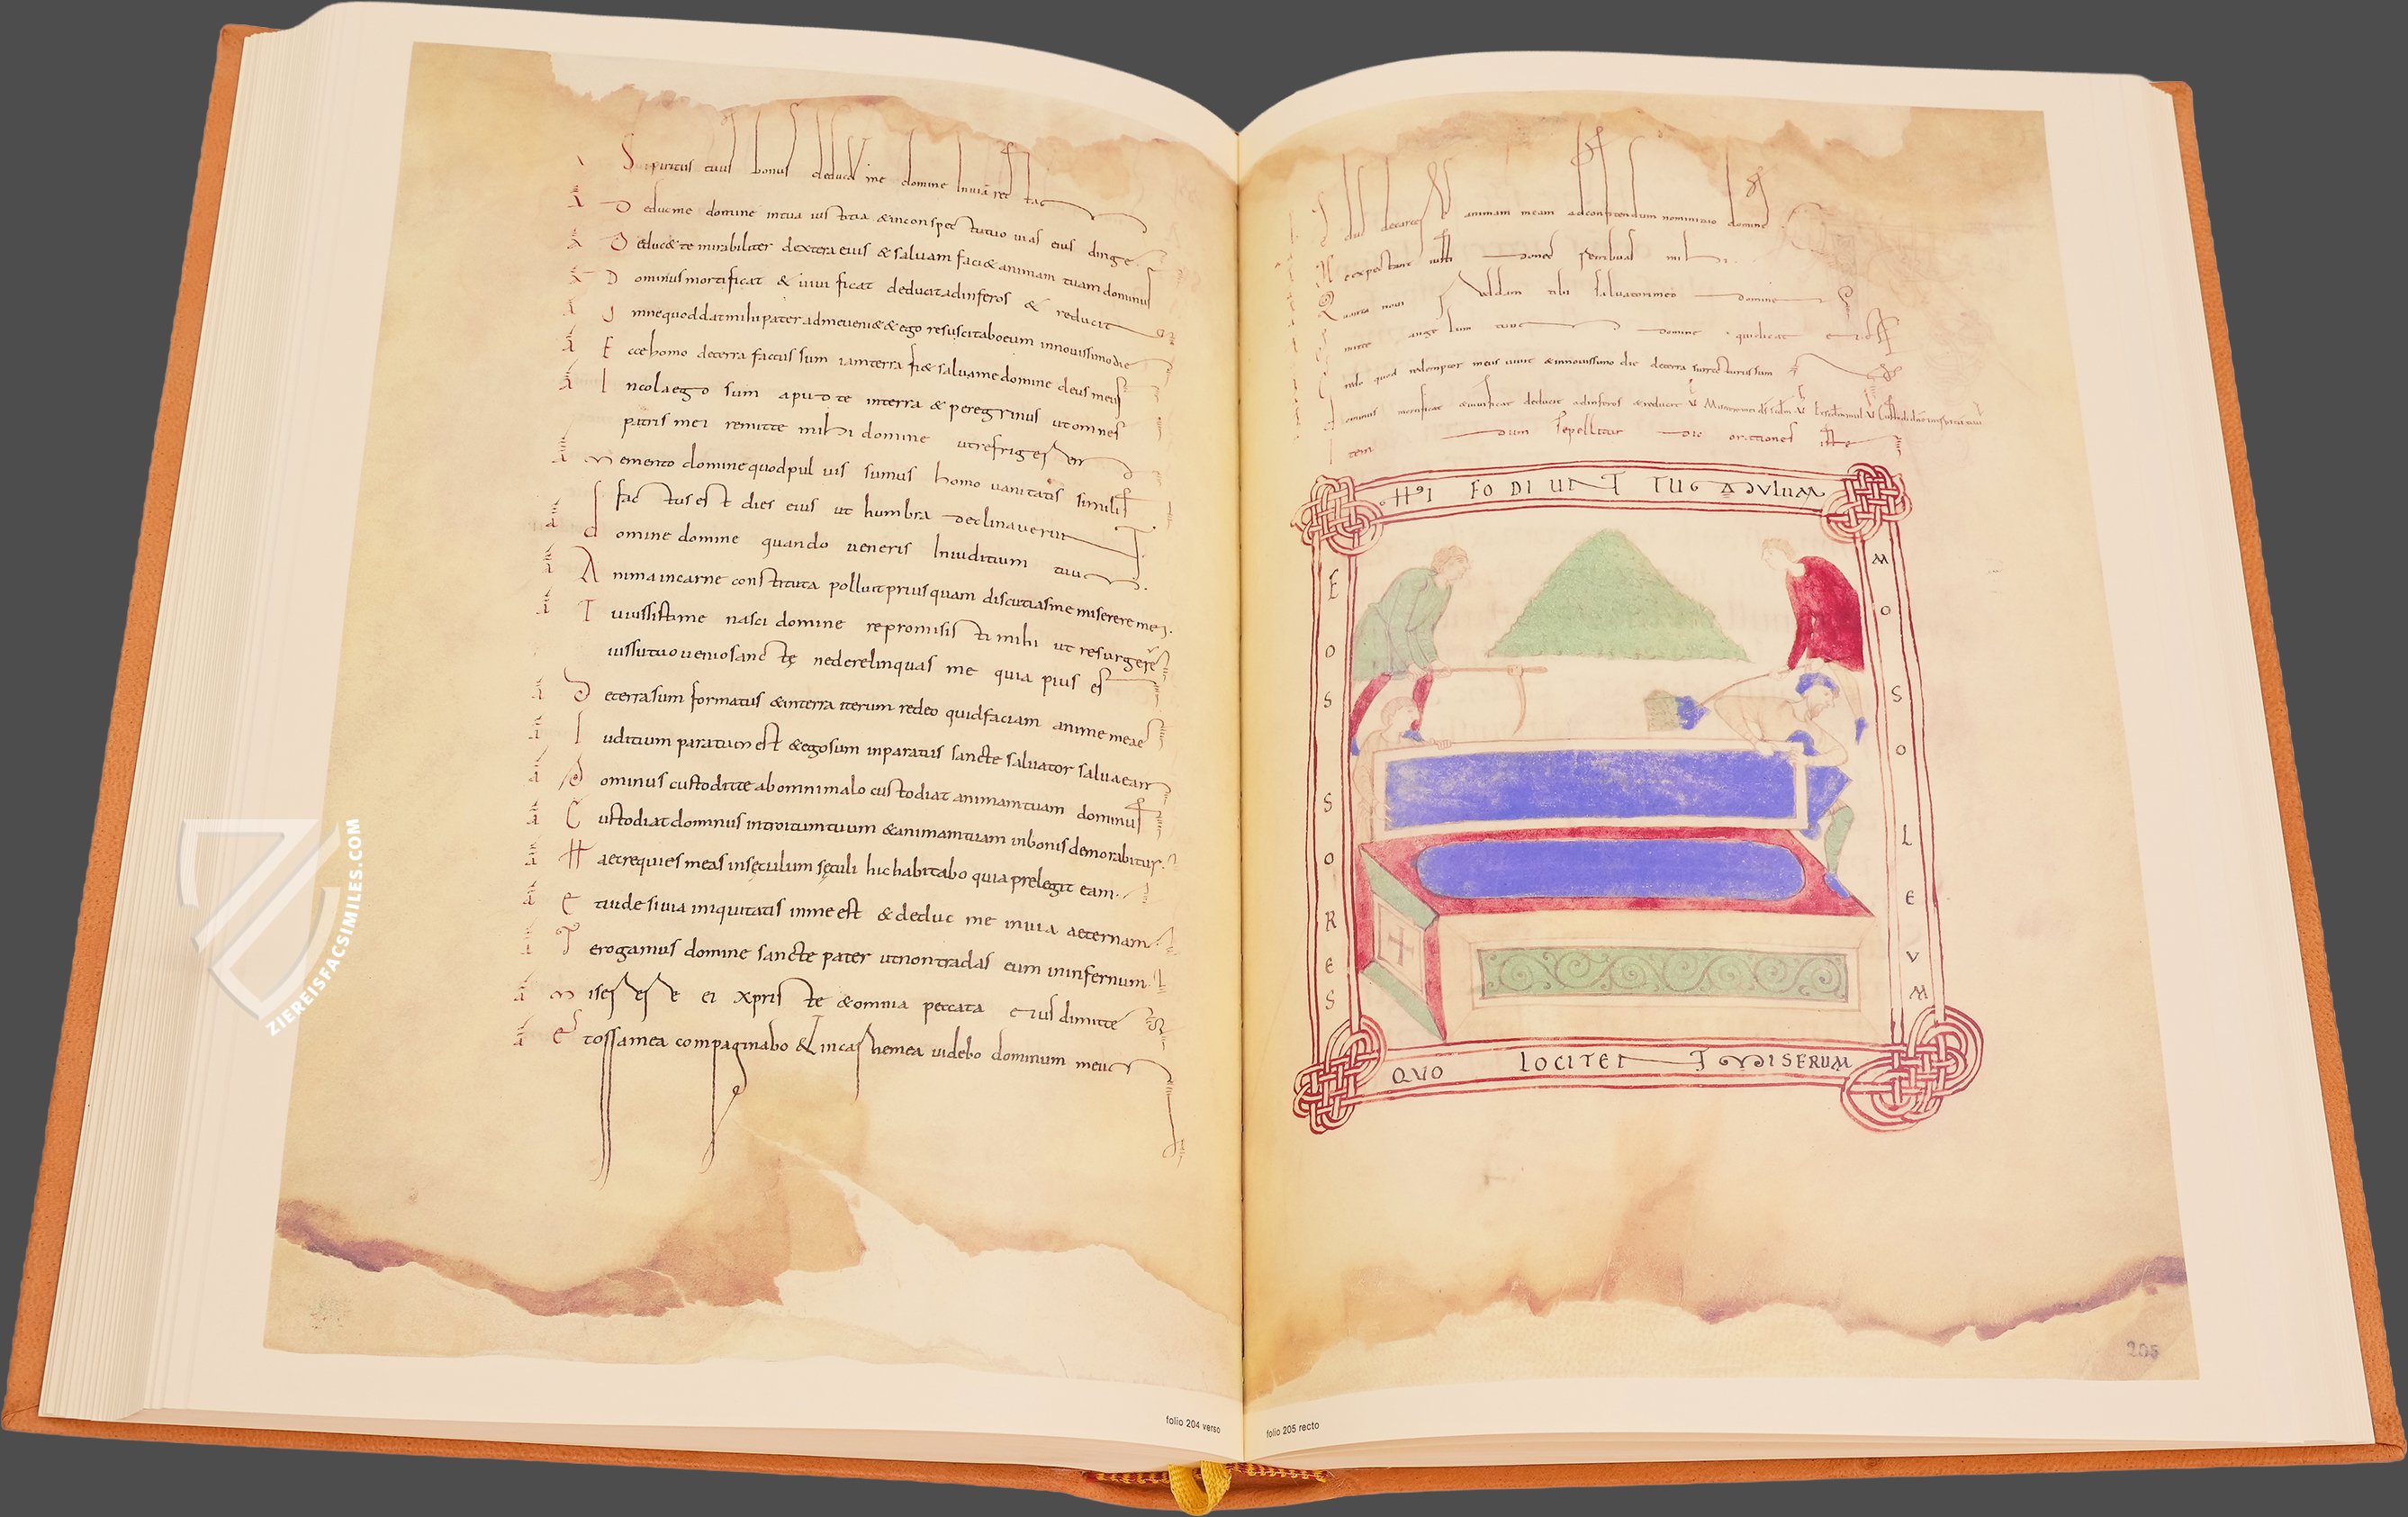 Spiritus tuus bonus deducat me domine Inuiã rectã
D educme domine intua iustitia &inconspectutuo uias eius dirige
D educ&te mirabiliter dextera eius & saluam faci& animam tuam dominus
D ominusmortificat & uiuificat deducitadinferos & reducit
O mnequoddatmihipater admeueni& & ego resuscitaboeum innouissimodie
E ccehomo deterra factus sum iamterra fi& saluame domine deus meus
I ncolaego sum apud te interra & peregrinus utomnes
patris mei remitte mihi domine utrefrigerer
M emento domine quodpuluis sumus homo uanitatis similis
factus est dies eius ut humbra declinauerunt
d omine domine quando ueneris Iniuditium tuu
A nima incarne constituta polluit priusquam discutiasme miserere mei
T uiussistime nasci domine repromisisti mihi ut resurgere
iussutuo ueniosanctę nederelinquas me quia pius es
D eterrasum formatus &interra iterum redeo quidfaciam anime meae
I uditium paratum est &egosum inparatus sancte saluator saluaeam
D ominus custodit te abomnimalo custodiat animamtuam dominus
C ustodiat dominus introitumtuum &animamtuam inbonis demorabitur
H aecrequies meas insęculum sęculi hichabitabo quia prelegit eam
E tuide siuia iniquitatis inme est & deduc me inuia aeternam
T erogamus domine sancte pater utnontradas eum ininfernum
M iserere ei xpriste &omnia peccata eius dimitte
E tossamea compaginabo &incarnemea uidebo dominum meu
decarcere animam meam adconfitendum nominituo domine
N eexpectant iusti donec retribuas mihi
Q uarta noui Reddam tibi salutarimeo domine
mitte angelum tuu domine quidicat
C redo quod redemptor meus uiuit &innouissimo die deterra surrecturussum
D ominus mortificat &uiuificat deducit adinferos &reducit
Item dum sepellitur dic orationes iste
HI FODIUNT TUGADULUM
E
O
S
S
O
R
E
S
M
O
S
O
L
E
V
M
QUO LOCITENT MISERUM
205
folio 204 verso
folio 205 recto
ZIEREISFACSIMILES.COM